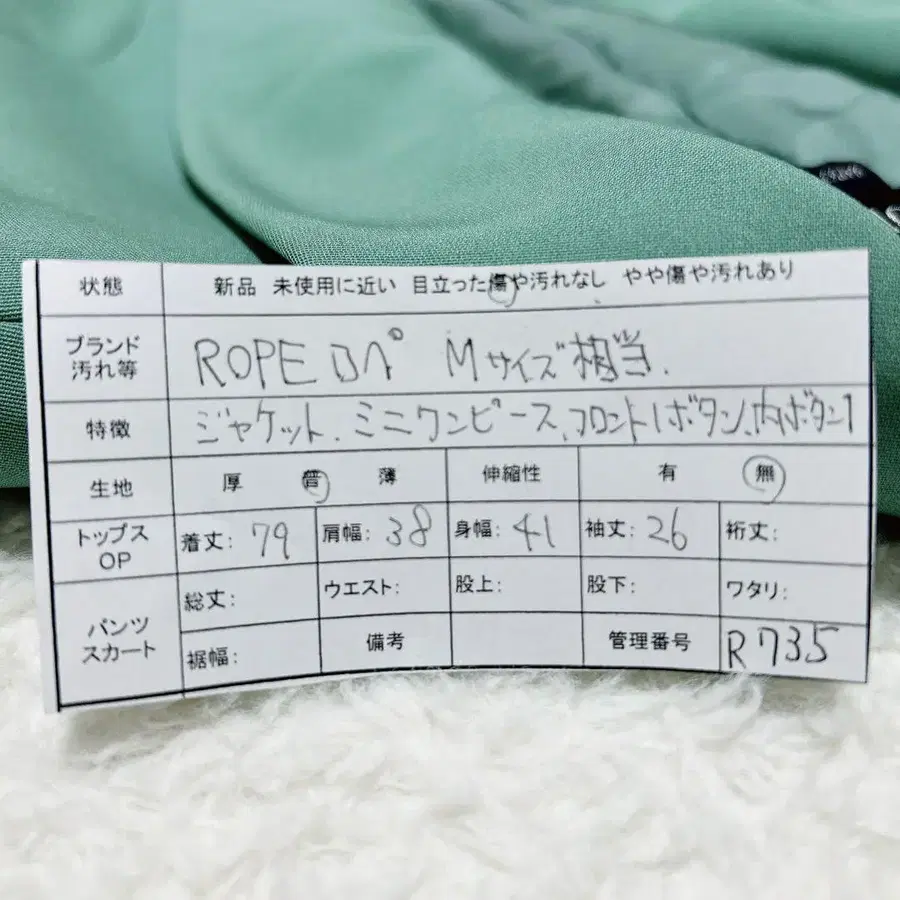 状態 新品 未使用に近い 目立った傷や汚れなし やや傷や汚れあり
ブランド
汚れ等 ROPE ロペ Mサイズ相当.
特徴 ジャケット、ミニワンピース、フロント1ボタン、内ボタン1
生地 厚 普 薄 伸縮性 有 無
トップス
OP 着丈: 79 肩幅: 38 身幅: 41 袖丈: 26 裄丈:
パンツ
スカート 総丈: ウエスト: 股上: 股下: ワタリ:
裾幅: 備考 管理番号 R735